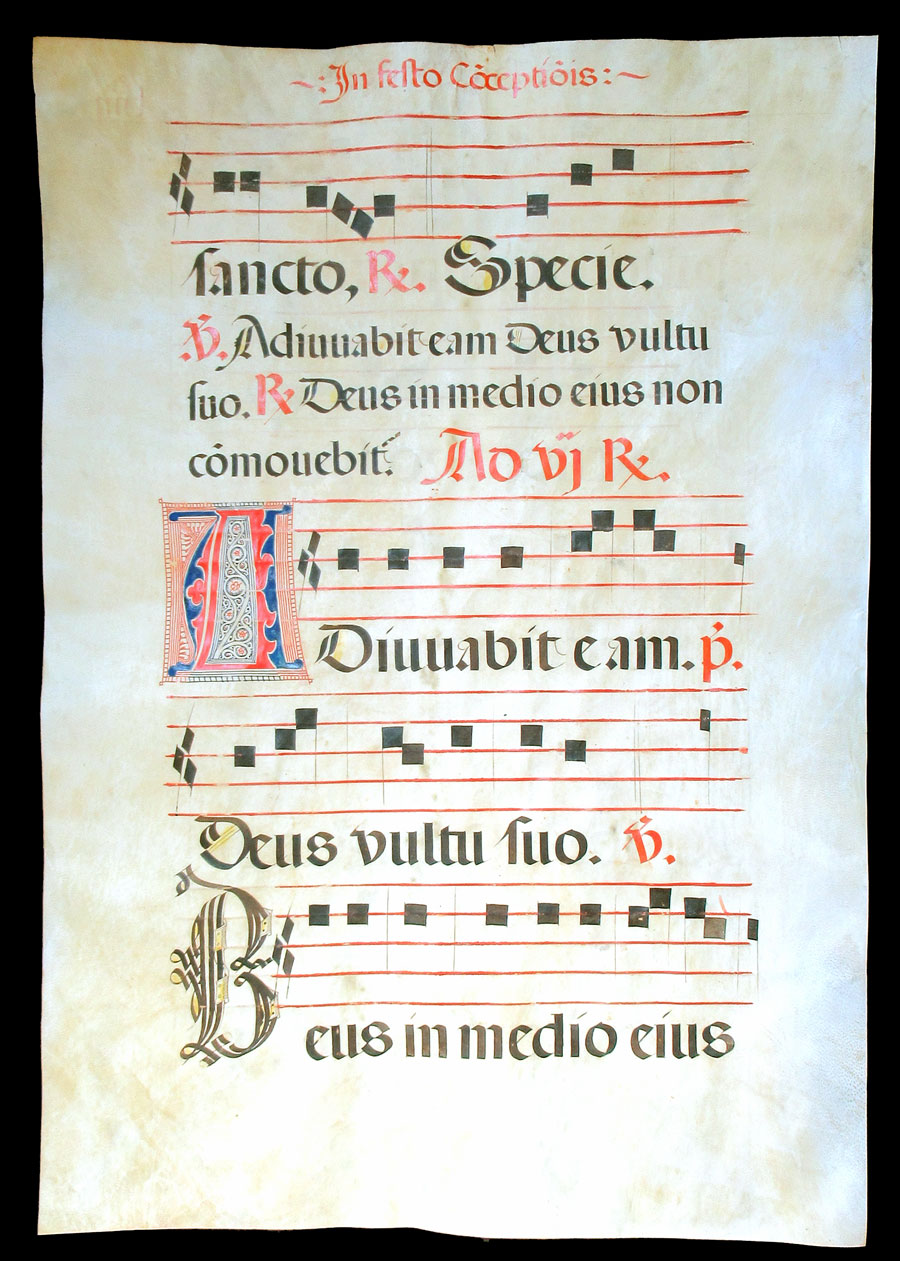 ~:In festo Cõceptiõis:~
sancto, ℟. Specie.
℣. Adiuuabit eam Deus vultu
suo. ℟ Deus in medio eius non
cõmouebit̃. Ad vj ℟.
ADiuuabit eam. p̃.
Deus vultu suo. ℣.
Deus in medio eius